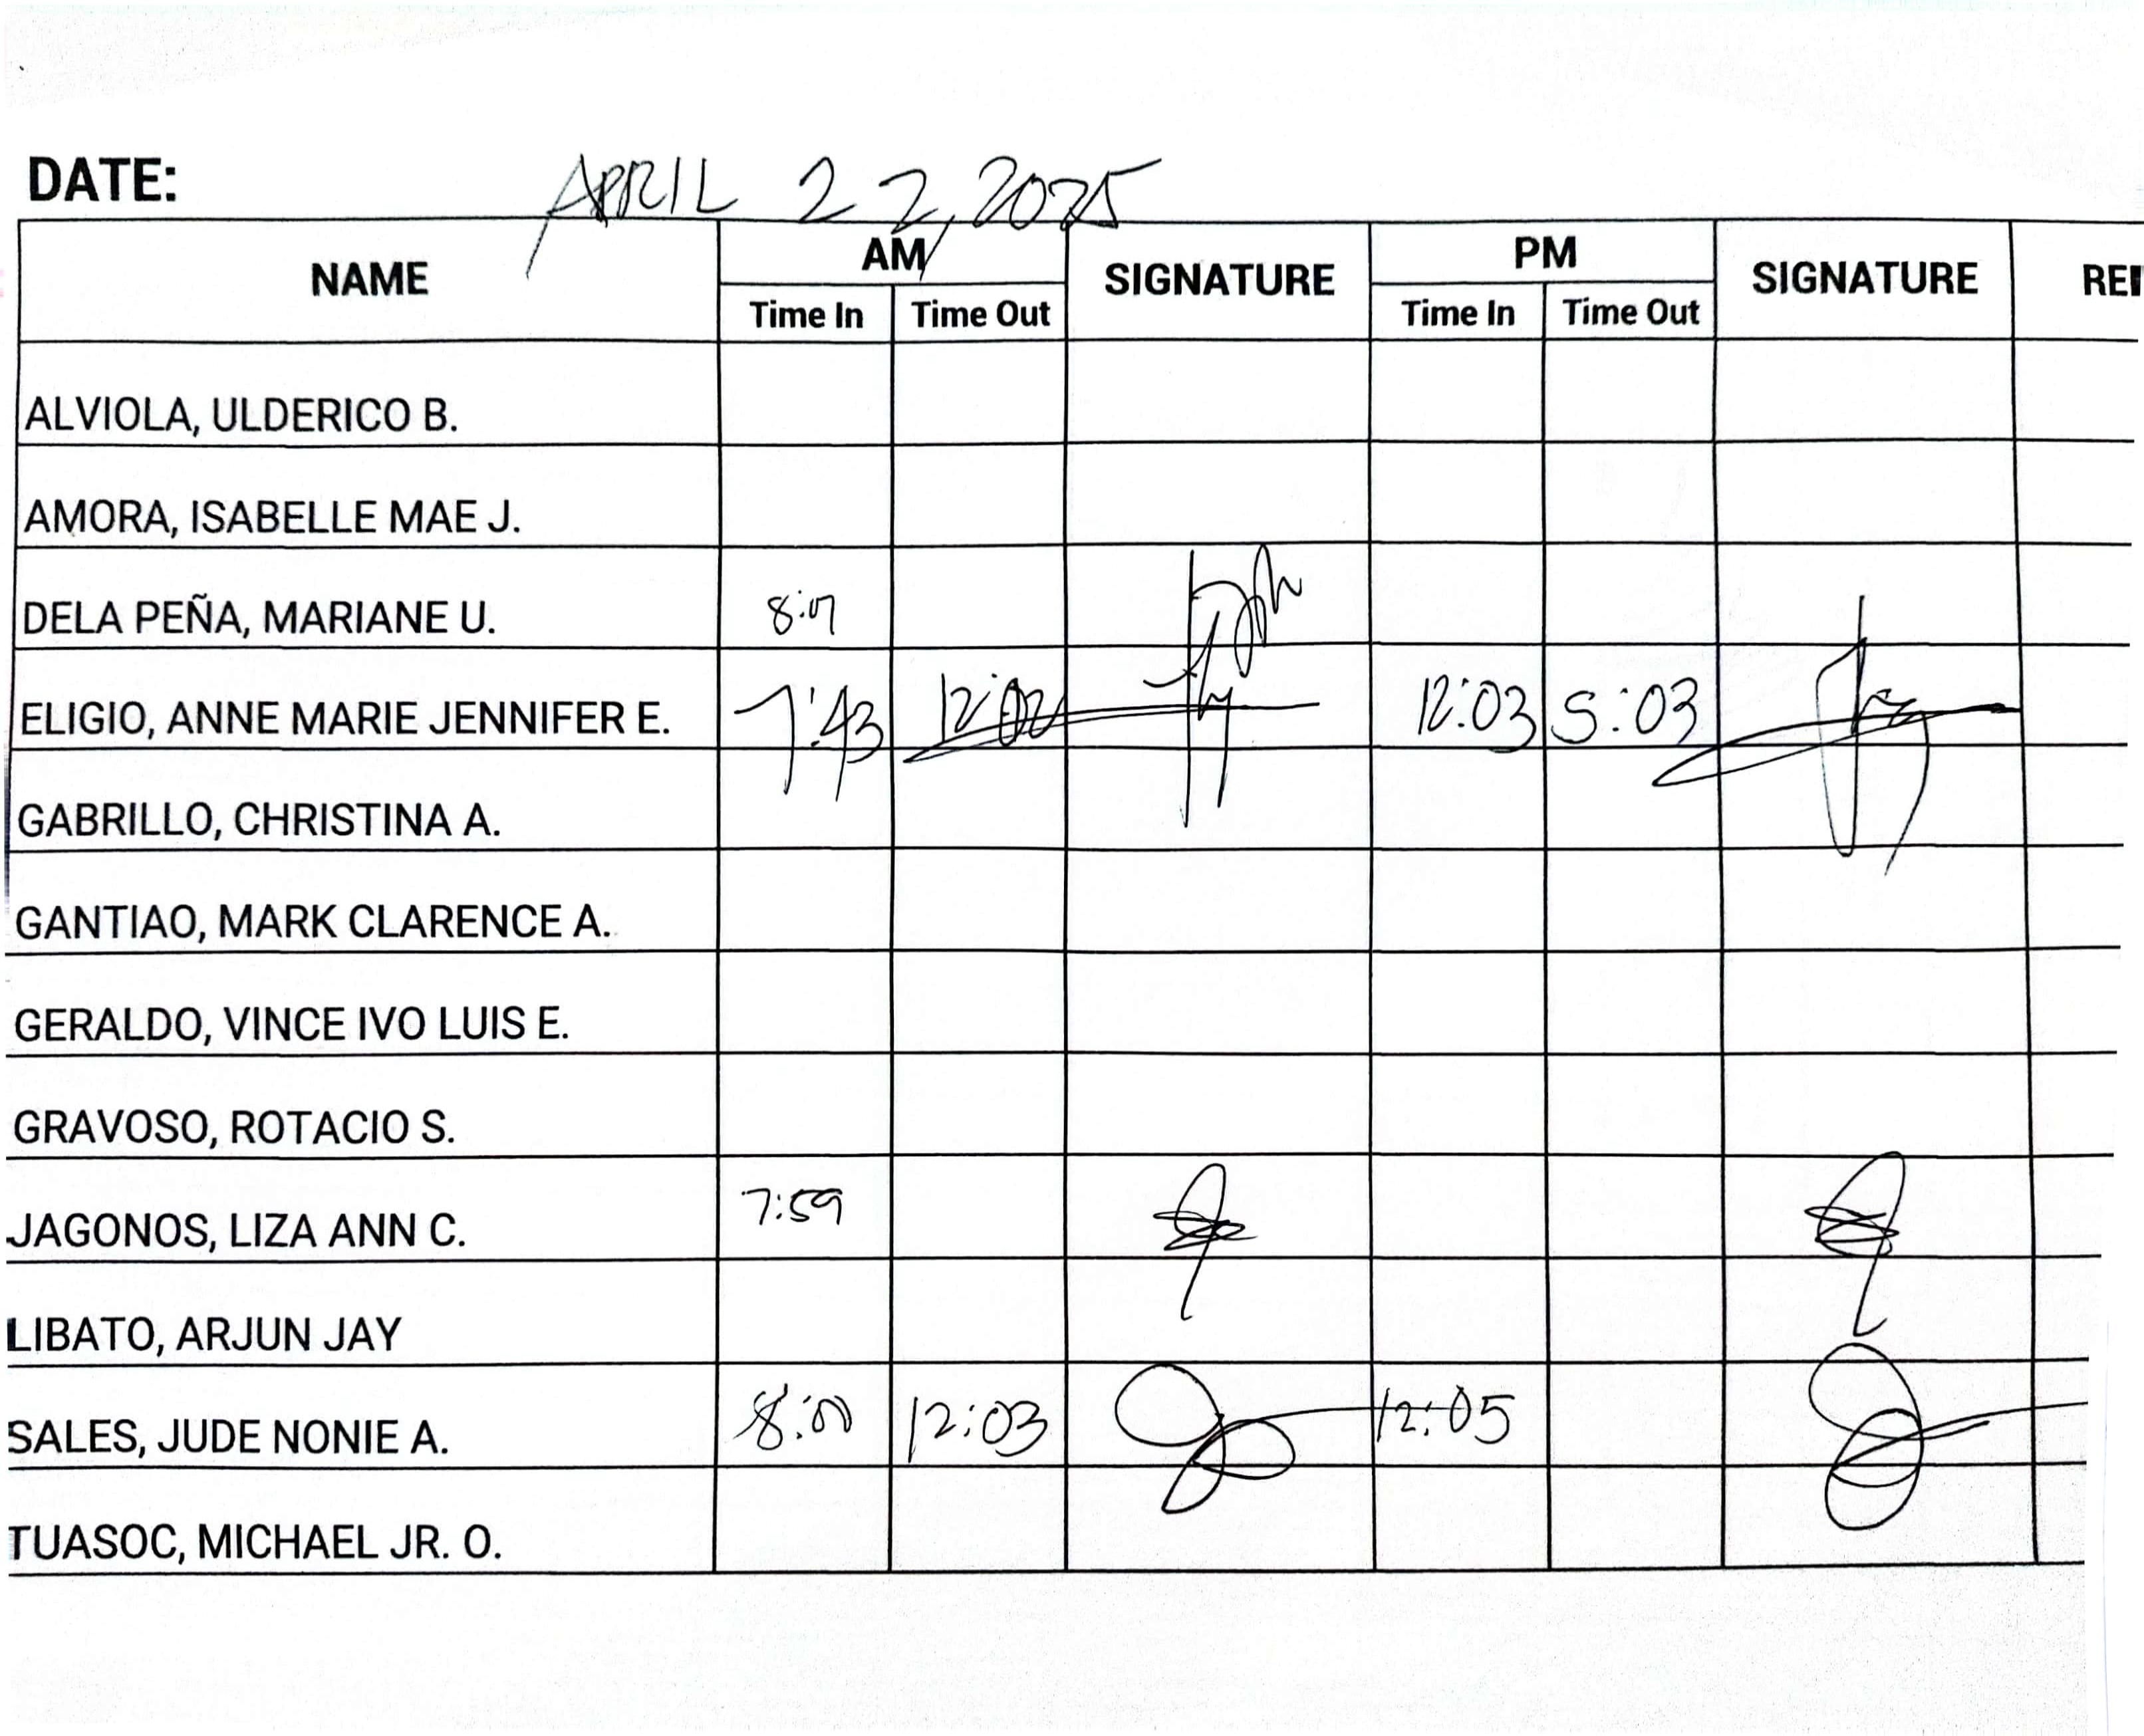 DATE: APRIL 22, 2025
NAME AM SIGNATURE PM SIGNATURE
Time In Time Out Time In Time Out
ALVIOLA, ULDERICO B.
AMORA, ISABELLE MAE J.
DELA PEÑA, MARIANE U.
ELIGIO, ANNE MARIE JENNIFER E. 7:43 12:02 12:03 5:03
GABRILLO, CHRISTINA A.
GANTIAO, MARK CLARENCE A.
GERALDO, VINCE IVO LUIS E.
GRAVOSO, ROTACIO S.
JAGONOS, LIZA ANN C. 7:59
LIBATO, ARJUN JAY
SALES, JUDE NONIE A. 8:00 12:03 12:05
TUASOC, MICHAEL JR. O.